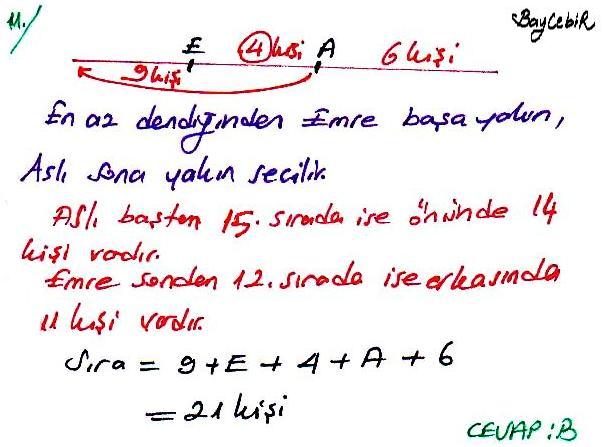 11./ BayCebir
E ④ kişi A 6 kişi
9 kişi
En az dendiğinden Emre başa yakın,
Aslı sona yakın seçilir.
Aslı baştan 15. sırada ise önünde 14
kişi vardır.
Emre sondan 12. sırada ise arkasında
11 kişi vardır.
Sıra = 9 + E + 4 + A + 6
= 21 kişi
CEVAP : B